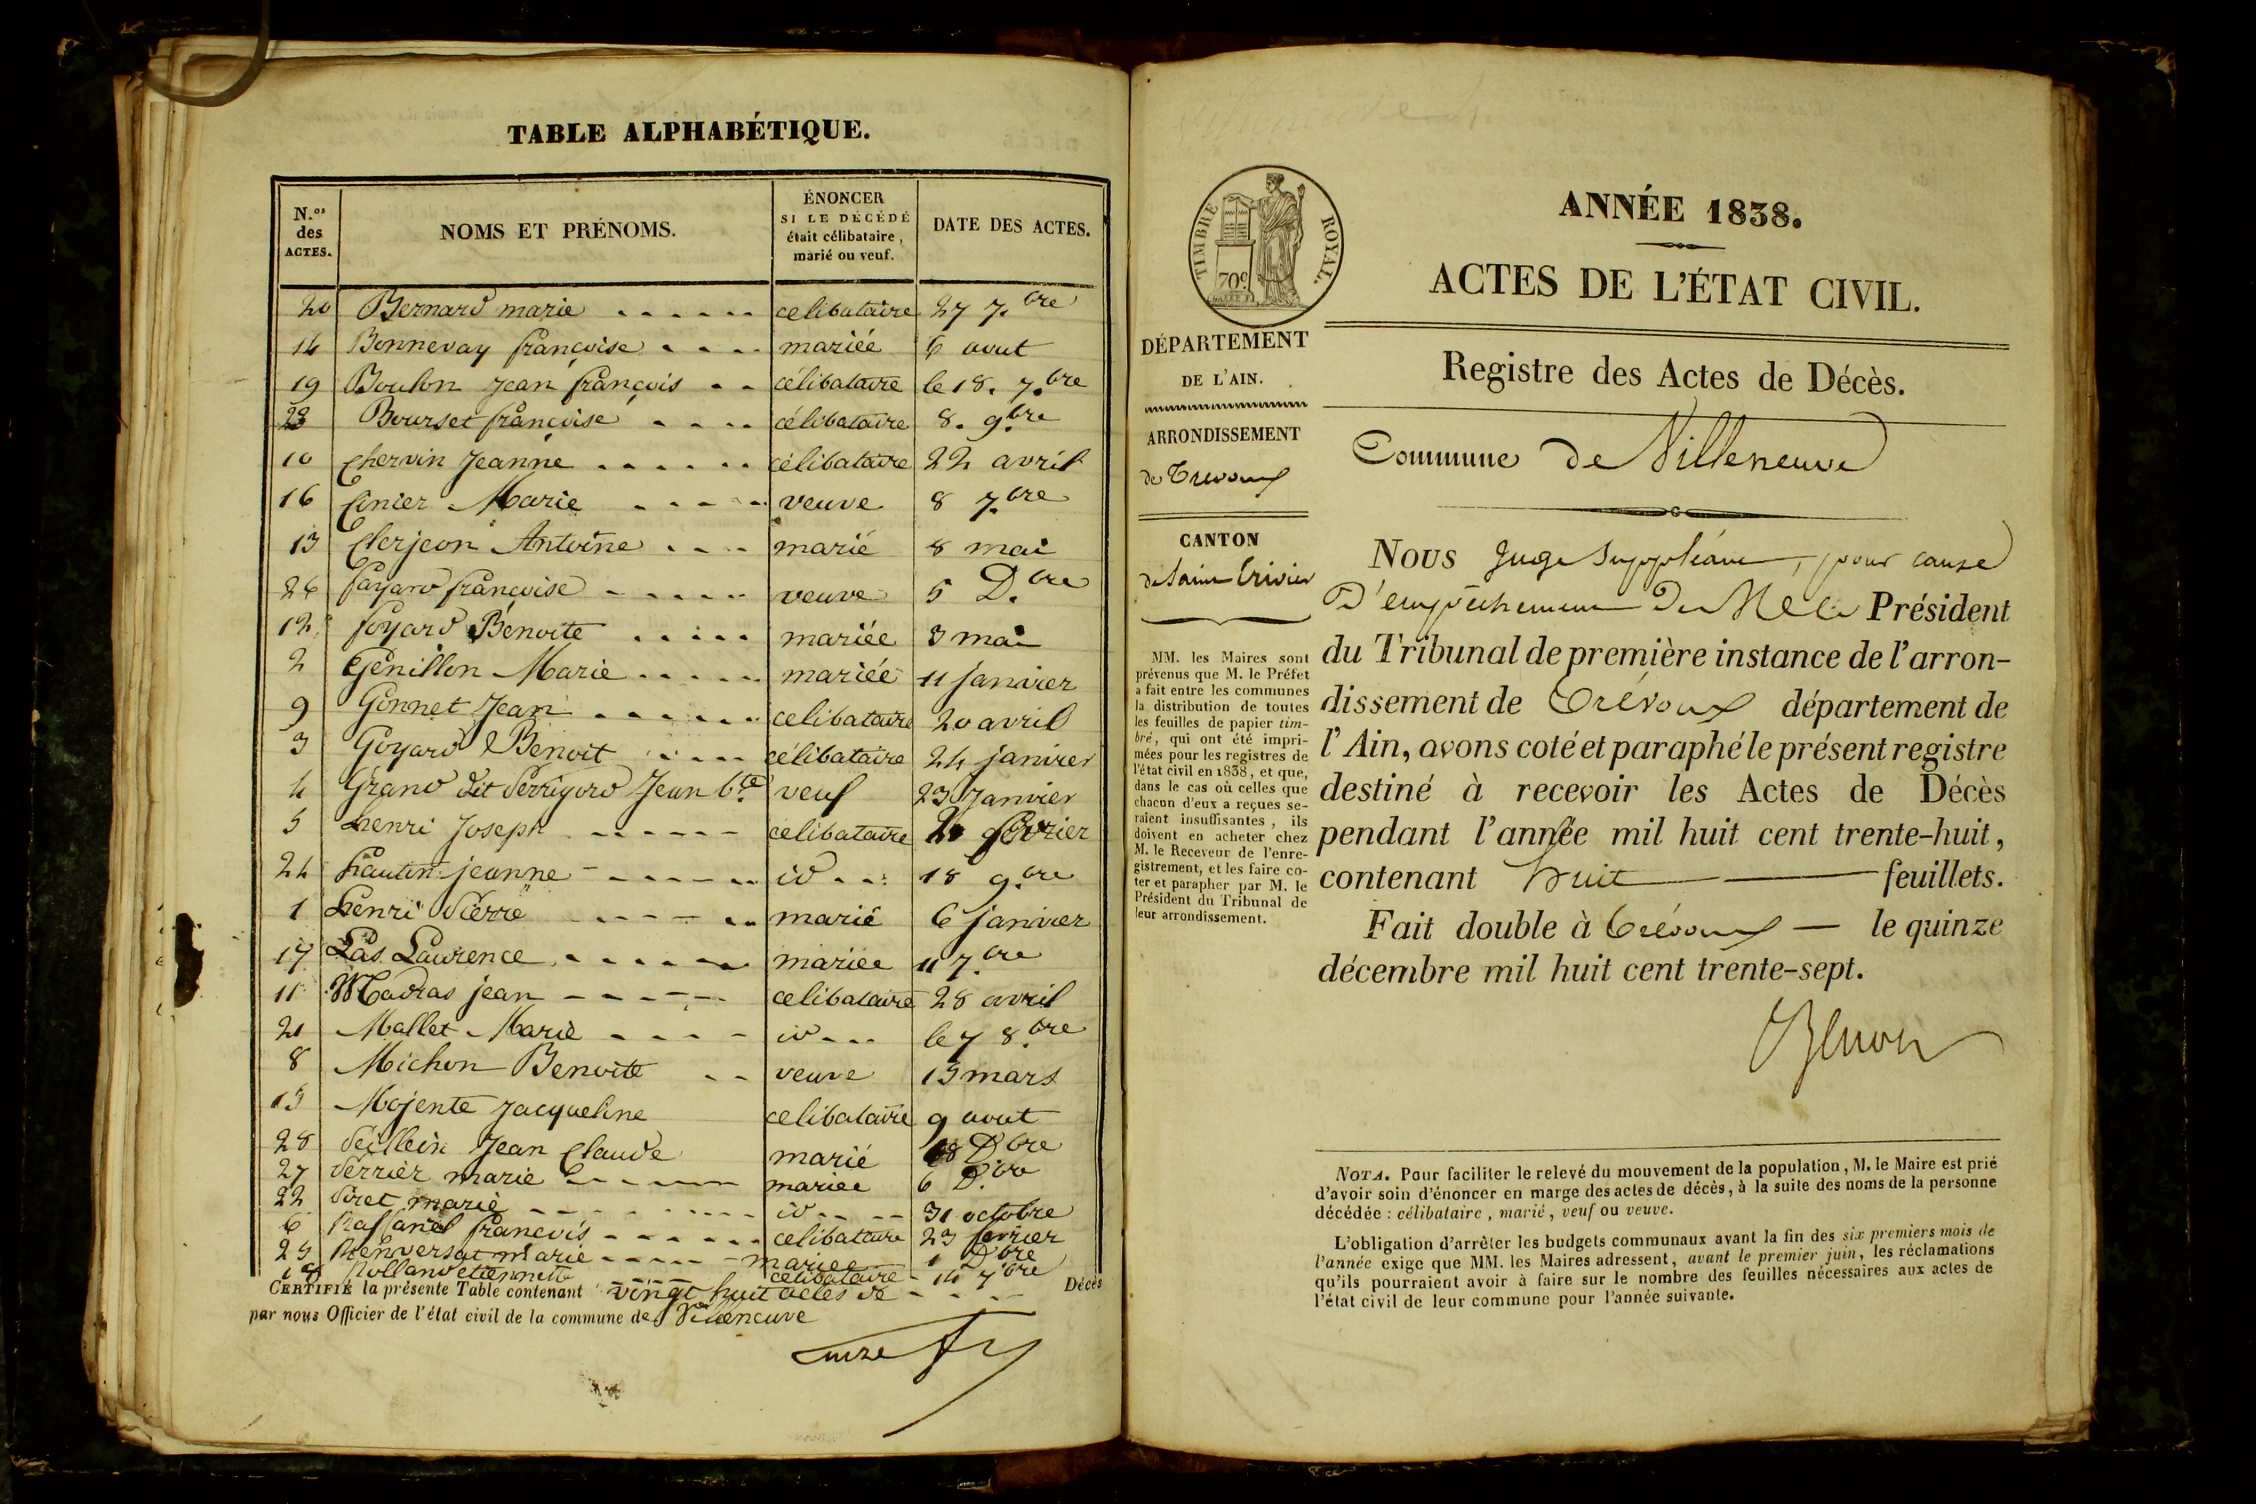 TABLE ALPHABÉTIQUE.
N.os des ACTES.
NOMS ET PRÉNOMS.
ÉNONCER SI LE DÉCÉDÉ était célibataire, marié ou veuf.
DATE DES ACTES.
20 Bernard marie celibataire 27 7.bre
14 Bonnevay françoise mariée 6 aout
19 Boulon jean françois célibataire le 18. 7.bre
23 Bourset françoise célibataire 8. 9.bre
10 Chervin jeanne célibataire 22 avril
16 Cinier Marie veuve 8 7.bre
13 Clerjeon Antoine marié 8 mai
26 fayard françoise veuve 5 D.bre
12 foyard Benoite mariée 3 mai
2 Genillon Marie mariée 11 janvier
9 Gonnet Jean celibataire 20 avril
3 Goyard Benoit célibataire 24 janvier
4 Grand dit Perrigord Jean b.te veuf 23 Janvier
5 henri Joseph celibataire fevrier
24 hautin jeanne id 18 9.bre
1 henri Pierre marié 6 janvier
17 Las Laurence mariée 11 7.bre
11 Madras jean celibataire 28 avril
21 Mallet Marie id le 7 8.bre
8 Michon Benoite veuve 13 mars
15 Mojente jacqueline celibataire 9 aout
28 Peillein Jean Claude marié D.bre
27 Perrier marie mariee 6 D.bre
22 Piret marie id 31 octobre
6 Raffanel francois celibataire 23 fevrier
25 Renversat marie mariee 1 D.bre
18 Rolland etiennette celibataire 14 7bre
CERTIFIÉ la présente Table contenant vingt huit actes de Décès
par nous Officier de l'état civil de la commune de Villeneuve
TIMBRE ROYAL.
70c.
DÉPARTEMENT
DE L'AIN.
ARRONDISSEMENT
de Trevoux
CANTON
de Saint Trivier
MM. les Maires sont
prévenus que M. le Préfet
a fait entre les communes
la distribution de toutes
les feuilles de papier tim-
bré, qui ont été impri-
mées pour les registres de
l'état civil en 1838, et que,
dans le cas où celles que
chacun d'eux a reçues se-
raient insuffisantes, ils
doivent en acheter chez
M. le Receveur de l'enre-
gistrement, et les faire co-
ter et parapher par M. le
Président du Tribunal de
leur arrondissement.
ANNÉE 1838.
ACTES DE L'ÉTAT CIVIL.
Registre des Actes de Décès.
Commune de Villeneuve
NOUS Juge Suppléant, pour cause
d'empêchement de M le Président
du Tribunal de première instance de l'arron-
dissement de Trévoux département de
l'Ain, avons coté et paraphé le présent registre
destiné à recevoir les Actes de Décès
pendant l'année mil huit cent trente-huit,
contenant huit feuillets.
Fait double à Trévoux — le quinze
décembre mil huit cent trente-sept.
NOTA. Pour faciliter le relevé du mouvement de la population, M. le Maire est prié
d'avoir soin d'énoncer en marge des actes de décès, à la suite des noms de la personne
décédée : célibataire, marié, veuf ou veuve.
L'obligation d'arrêter les budgets communaux avant la fin des six premiers mois de
l'année exige que MM. les Maires adressent, avant le premier juin, les réclamations
qu'ils pourraient avoir à faire sur le nombre des feuilles nécessaires aux actes de
l'état civil de leur commune pour l'année suivante.